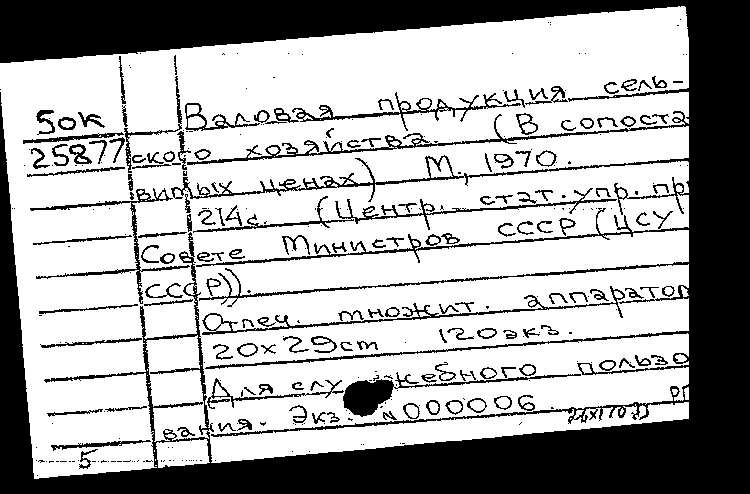 50к Валовая продукция сель-
25877 ского хозяйства. (В сопоста
витых ценах) М., 1970.
214с. (Центр. стат. упр. при
Совете Министров СССР (ЦСУ
СССР)).
Отпеч. множит. аппаратом
20×29cm 120экз.
Для служебного пользо
вания. Экз. №000006
5